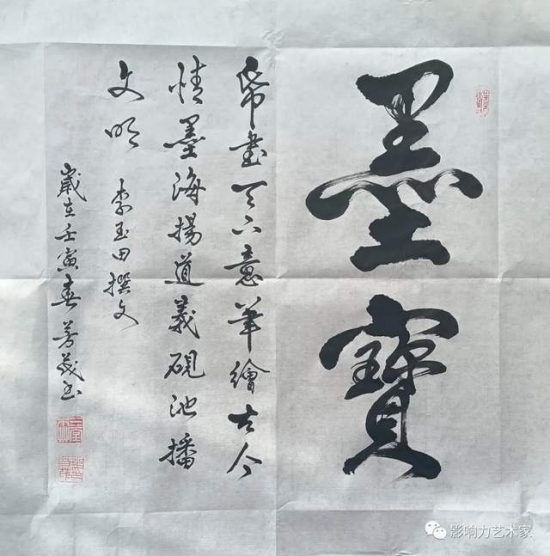 墨寶
希畫天下意筆繪古今
情墨海揚道義硯池播
文明
李玉田撰文
歲在壬寅春芳義书
影响力艺术家